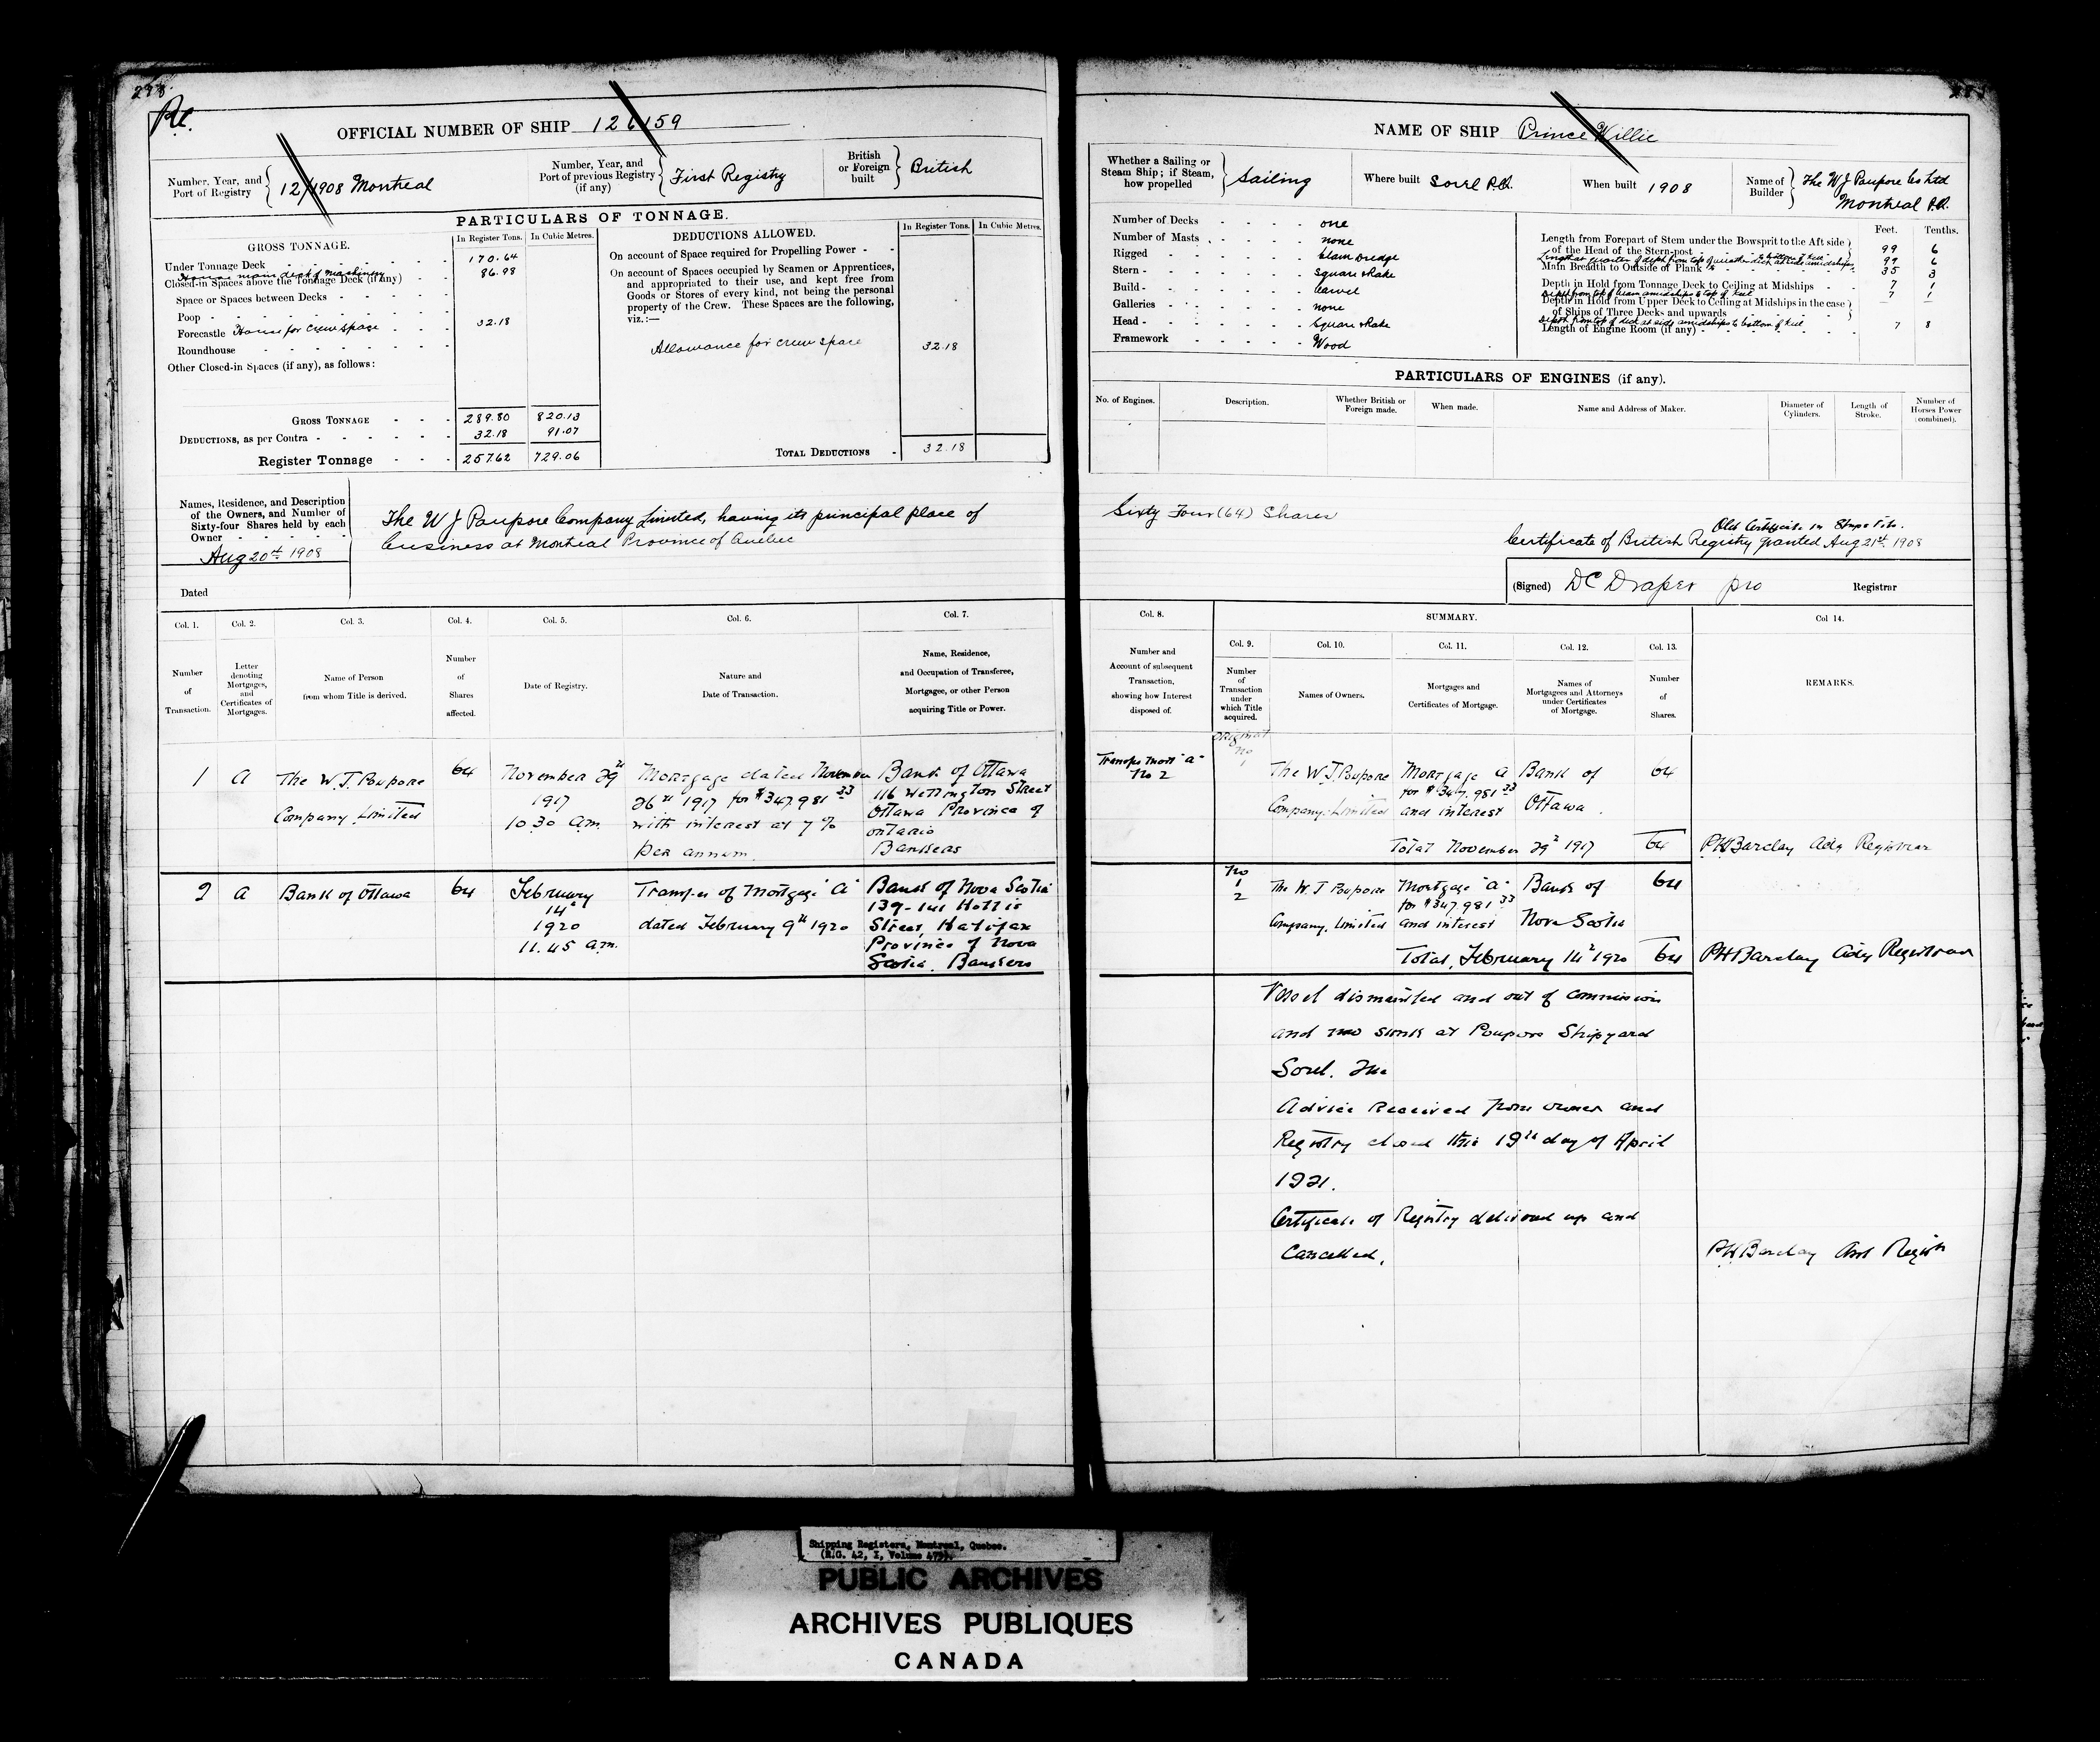 298
OFFICIAL NUMBER OF SHIP 126159
Number, Year, and Port of Registry 12/1908 Montreal
Number, Year, and Port of previous Registry (if any) First Registry
British or Foreign built British
PARTICULARS OF TONNAGE.
GROSS TONNAGE.
In Register Tons. In Cubic Metres.
Under Tonnage Deck 170.64
House main deck & machinery 86.98
Closed-in Spaces above the Tonnage Deck (if any)
Space or Spaces between Decks
Poop
Forecastle House for crew space 32.18
Roundhouse
Other Closed-in Spaces (if any), as follows:
GROSS TONNAGE 289.80 820.13
DEDUCTIONS, as per Contra 32.18 91.07
Register Tonnage 257.62 729.06
DEDUCTIONS ALLOWED.
In Register Tons. In Cubic Metres.
On account of Space required for Propelling Power
On account of Spaces occupied by Seamen or Apprentices,
and appropriated to their use, and kept free from
Goods or Stores of every kind, not being the personal
property of the Crew. These Spaces are the following,
viz.:—
Allowance for crew space 32.18
TOTAL DEDUCTIONS 32.18
Names, Residence, and Description
of the Owners, and Number of
Sixty-four Shares held by each
Owner
Aug 20th 1908
Dated
The W J Poupore Company Limited, having its principal place of
business at Montreal Province of Quebec
Col. 1. Col. 2. Col. 3. Col. 4. Col. 5. Col. 6. Col. 7.
Number of Transaction.
Letter denoting Mortgages, and Certificates of Mortgages.
Name of Person from whom Title is derived.
Number of Shares affected.
Date of Registry.
Nature and Date of Transaction.
Name, Residence, and Occupation of Transferee, Mortgagee, or other Person acquiring Title or Power.
1 A The W. J. Poupore Company Limited
64
November 29th 1917 10 30 am.
Mortgage dated November
26th 1917 for $347.981 33
with interest at 7%
per annum
Bank of Ottawa
116 Wellington Street
Ottawa Province of
Ontario
Bankers
2 A Bank of Ottawa
64
February
14th
1920
11.45 am.
Transfer of Mortgage "A"
dated February 9th 1920
Bank of Nova Scotia
139-141 Hollis
Street, Halifax
Province of Nova
Scotia. Bankers
NAME OF SHIP Prince Willie
Whether a Sailing or Steam Ship; if Steam, how propelled Sailing
Where built Sorel P.Q.
When built 1908
Name of Builder The W J Poupore Co Ltd
Montreal P.Q.
Number of Decks one
Number of Masts none
Rigged Clam Dredge
Stern Square & Rake
Build Carvel
Galleries none
Head Square & Rake
Framework Wood
Feet. Tenths.
Length from Forepart of Stem under the Bowsprit to the Aft side
of the Head of the Stern-post 99 6
Length at quarter of depth from top of weather deck at side amidships to bottom of keel 99 6
Main Breadth to Outside of Plank 35 3
Depth in Hold from Tonnage Deck to Ceiling at Midships 7 1
Depth from top of beam amidships to top of keel 7 1
Depth in Hold from Upper Deck to Ceiling at Midships in the case
of Ships of Three Decks and upwards
Depth from top of deck at side amidships to bottom of keel 7 8
Length of Engine Room (if any)
PARTICULARS OF ENGINES (if any).
No. of Engines. Description. Whether British or Foreign made. When made. Name and Address of Maker. Diameter of Cylinders. Length of Stroke. Number of Horses Power (combined).
Sixty Four (64) Shares
Old Certificate in Ships File.
Certificate of British Registry granted Aug 21st 1908
(Signed) DC Draper pro Registrar
Col. 8. SUMMARY. Col 14.
Col. 9. Col. 10. Col. 11. Col. 12. Col. 13.
Number and Account of subsequent Transaction, showing how Interest disposed of.
Number of Transaction under which Title acquired.
Names of Owners.
Mortgages and Certificates of Mortgage.
Names of Mortgagees and Attorneys under Certificates of Mortgage.
Number of Shares.
REMARKS.
Transfer Mort "A"
No 2
Original
No
1
The W. J. Poupore
Company. Limited
Mortgage A
for $347.981 33
and interest
Bank of
Ottawa
64
Total November 29th 1917 64 PH Barclay Actg Registrar
No
1
2
The W. J Poupore
Company. Limited
Mortgage "A"
for $347.981 33
and interest
Bank of
Nova Scotia
64
Total, February 14th 1920 64 PH Barclay Actg Registrar
Vessel dismantled and out of commission
and sunk at Poupore Shipyard
Sorel.
Advice Received from owner and
Registry closed this 19th day of April
1921.
Certificate of Registry delivered up and
Cancelled.
PH Barclay Asst Registr
Shipping Registers, Montreal, Quebec.
(R.G. 42, I, Volume 479).
PUBLIC ARCHIVES
ARCHIVES PUBLIQUES
CANADA